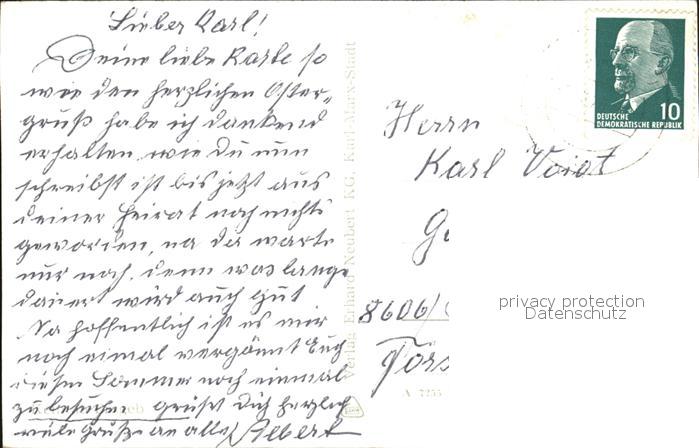 Lieber Karl!
Deine liebe Karte so
wie den herzlichen Oster-
gruß habe ich dankend
erhalten, wie du nun
schreibst ist bis jetzt aus
deiner Heirat noch nichts
geworden, na da warte
nur noch, denn was lange
dauert wird auch gut
Na hoffentlich ist es mir
noch einmal vergönnt Euch
diesen Sommer noch einmal
zu besuchen grüßt Dich herzlich
viele Grüße an alle Albert
Verlag Erhard Neubert KG, Karl-Marx-Stadt
DEUTSCHE
DEMOKRATISCHE REPUBLIK
10
Herrn
Karl Voigt
8606/
A 7255
privacy protection
Datenschutz